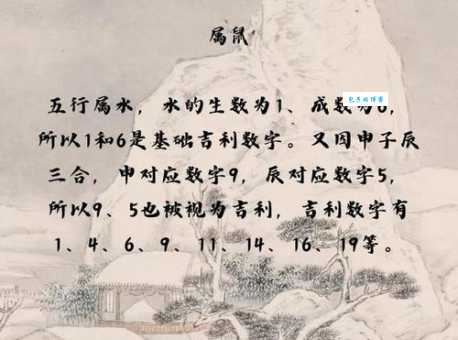 属鼠
五行属水，水的生数为1、成数为6，
所以1和6是基础吉利数字。又因申子辰
三合，申对应数字9，辰对应数字5，
所以9、5也被视为吉利，吉利数字有
1、4、6、9、11、14、16、19等。